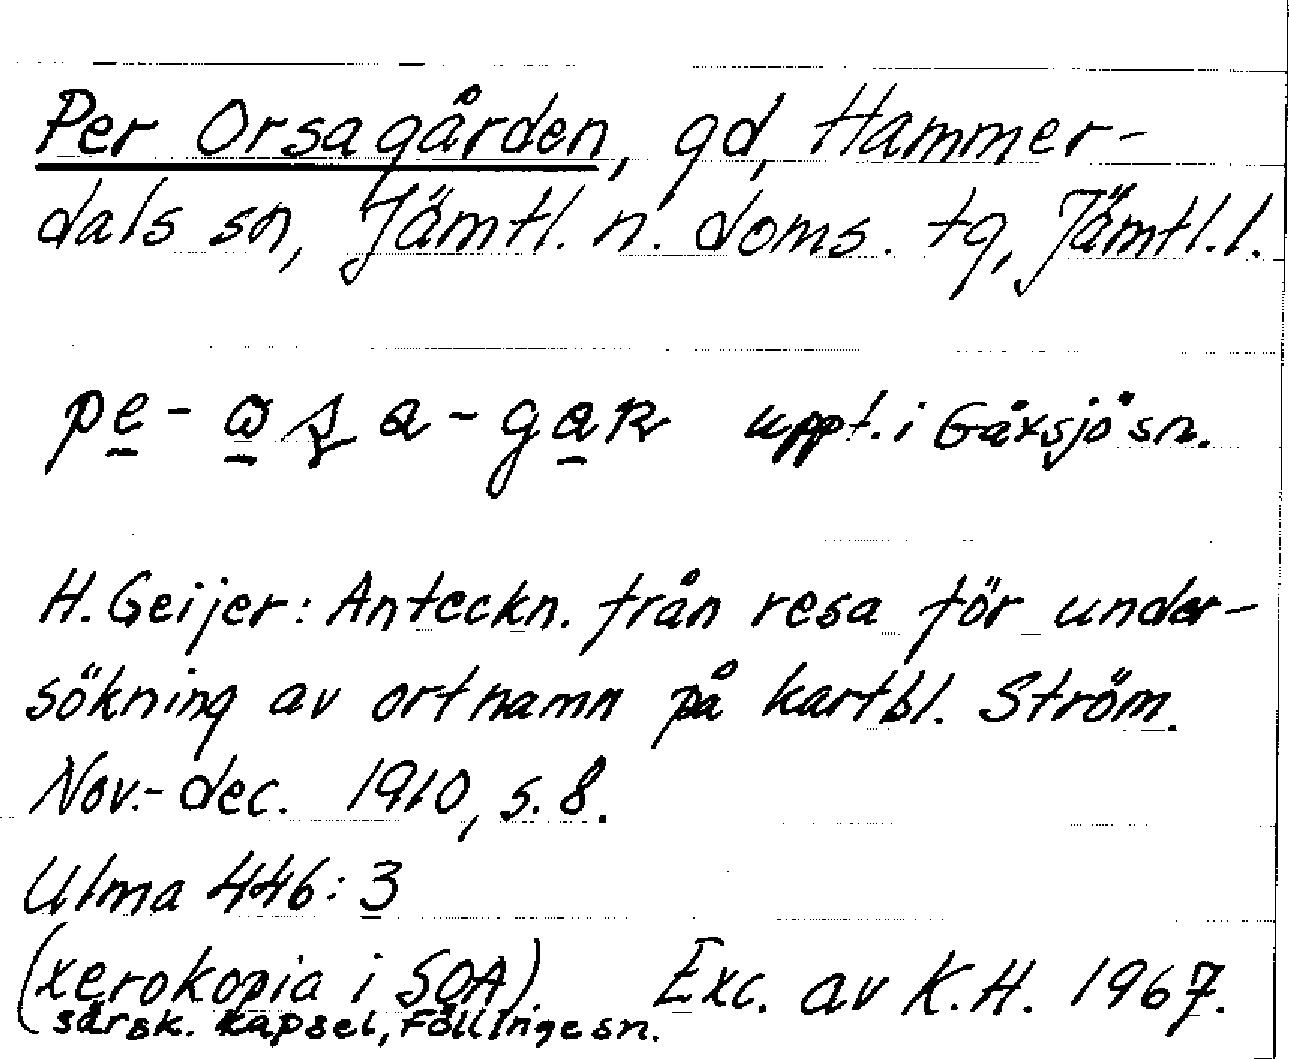 Per Orsagården, gd, Hammer-
dals sn, Jämtl. n. doms. tg, Jämtl. l.
uppt. i Gåxsjö sn.
H. Geijer: Anteckn. från resa för under-
sökning av ortnamn på kartbl. Ström.
Nov.- dec. 1910, s. 8.
Ulma 446:3
(xerokopia i SOA). Exc. av K.H. 1967.
särsk. kapsel, Föllinge sn.